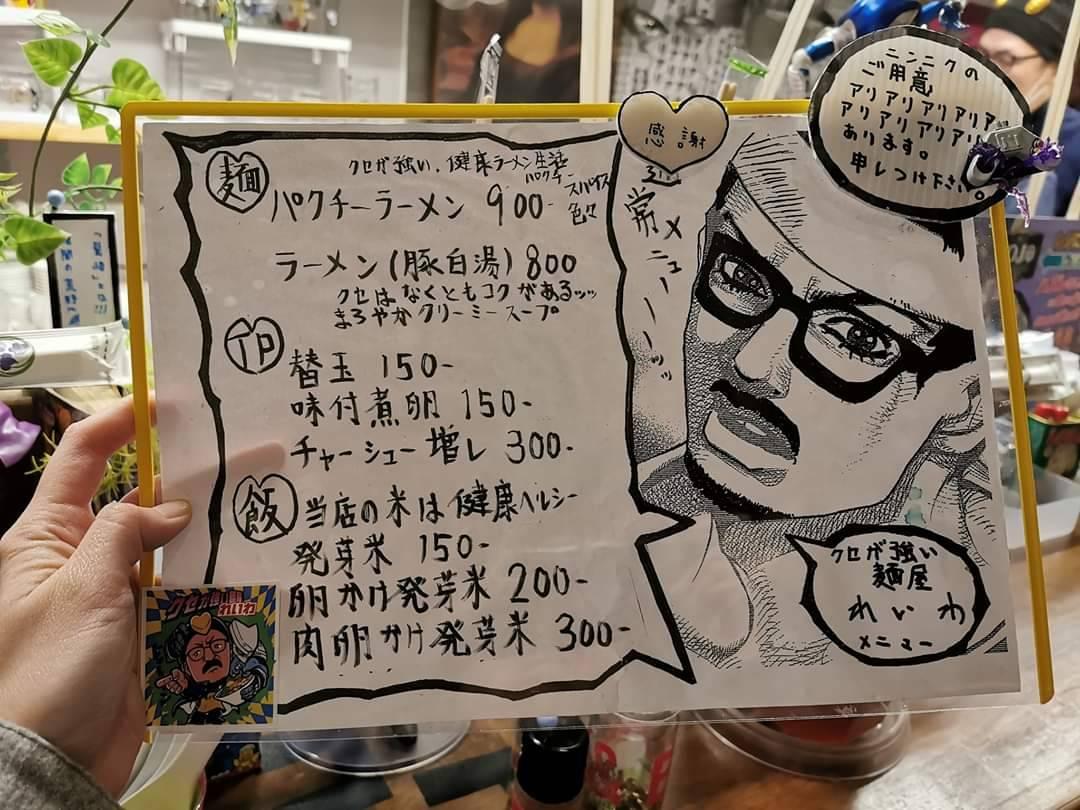 ニンニクの
ご用意
アリアリアリアリア
アリアリアリアリ
あります。
申しつけ下さい。
感謝
常メニューーーッッ
麺
クセが強い、健康ラーメン生活
パクチー
スパイス
色々
パクチーラーメン 900-
ラーメン(豚白湯) 800
クセはなくともコクがあるッッ
まろやかクリーミースープ
TP
替玉 150-
味付煮卵 150-
チャーシュー増し 300-
飯
当店の米は健康ヘルシー
発芽米 150-
卵かけ発芽米 200-
肉卵かけ発芽米 300-
クセが強い
麺屋
れいわ
メニュー
れいわ